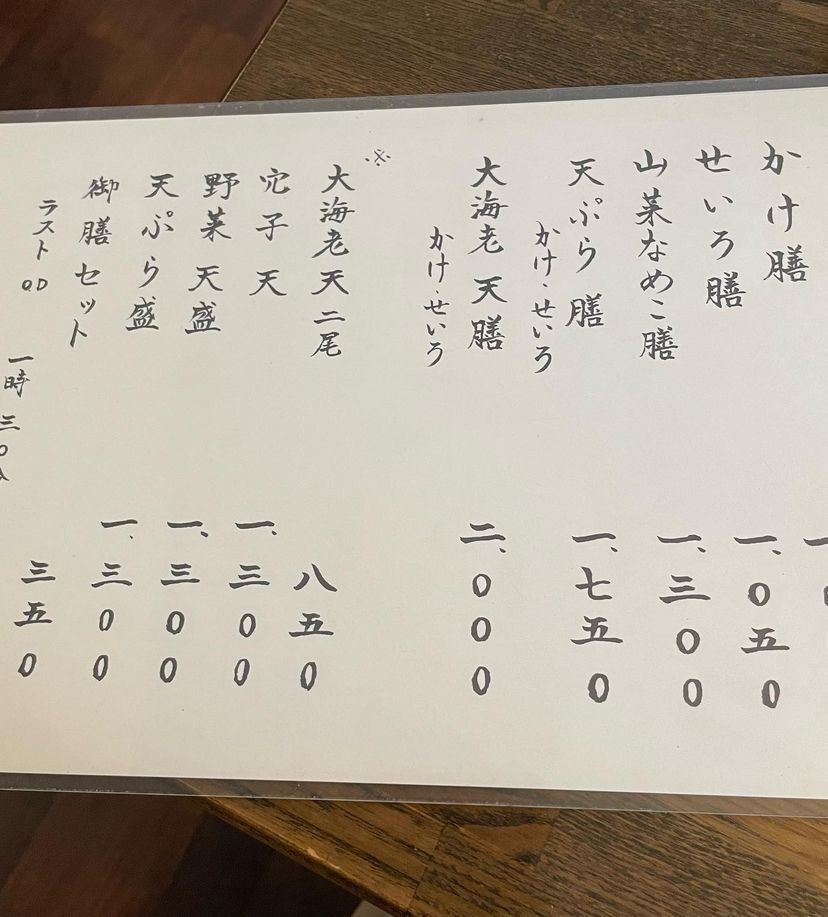 かけ膳
せいろ膳 一、0五0
山菜なめこ膳 一、三00
天ぷら膳 一、七五0
かけ・せいろ
大海老天膳 二、000
かけ・せいろ
※
大海老天二尾 八五0
穴子天 一、三00
野菜天盛 一、三00
天ぷら盛 一、三00
御膳セット 三五0
ラストO.D
一時三0